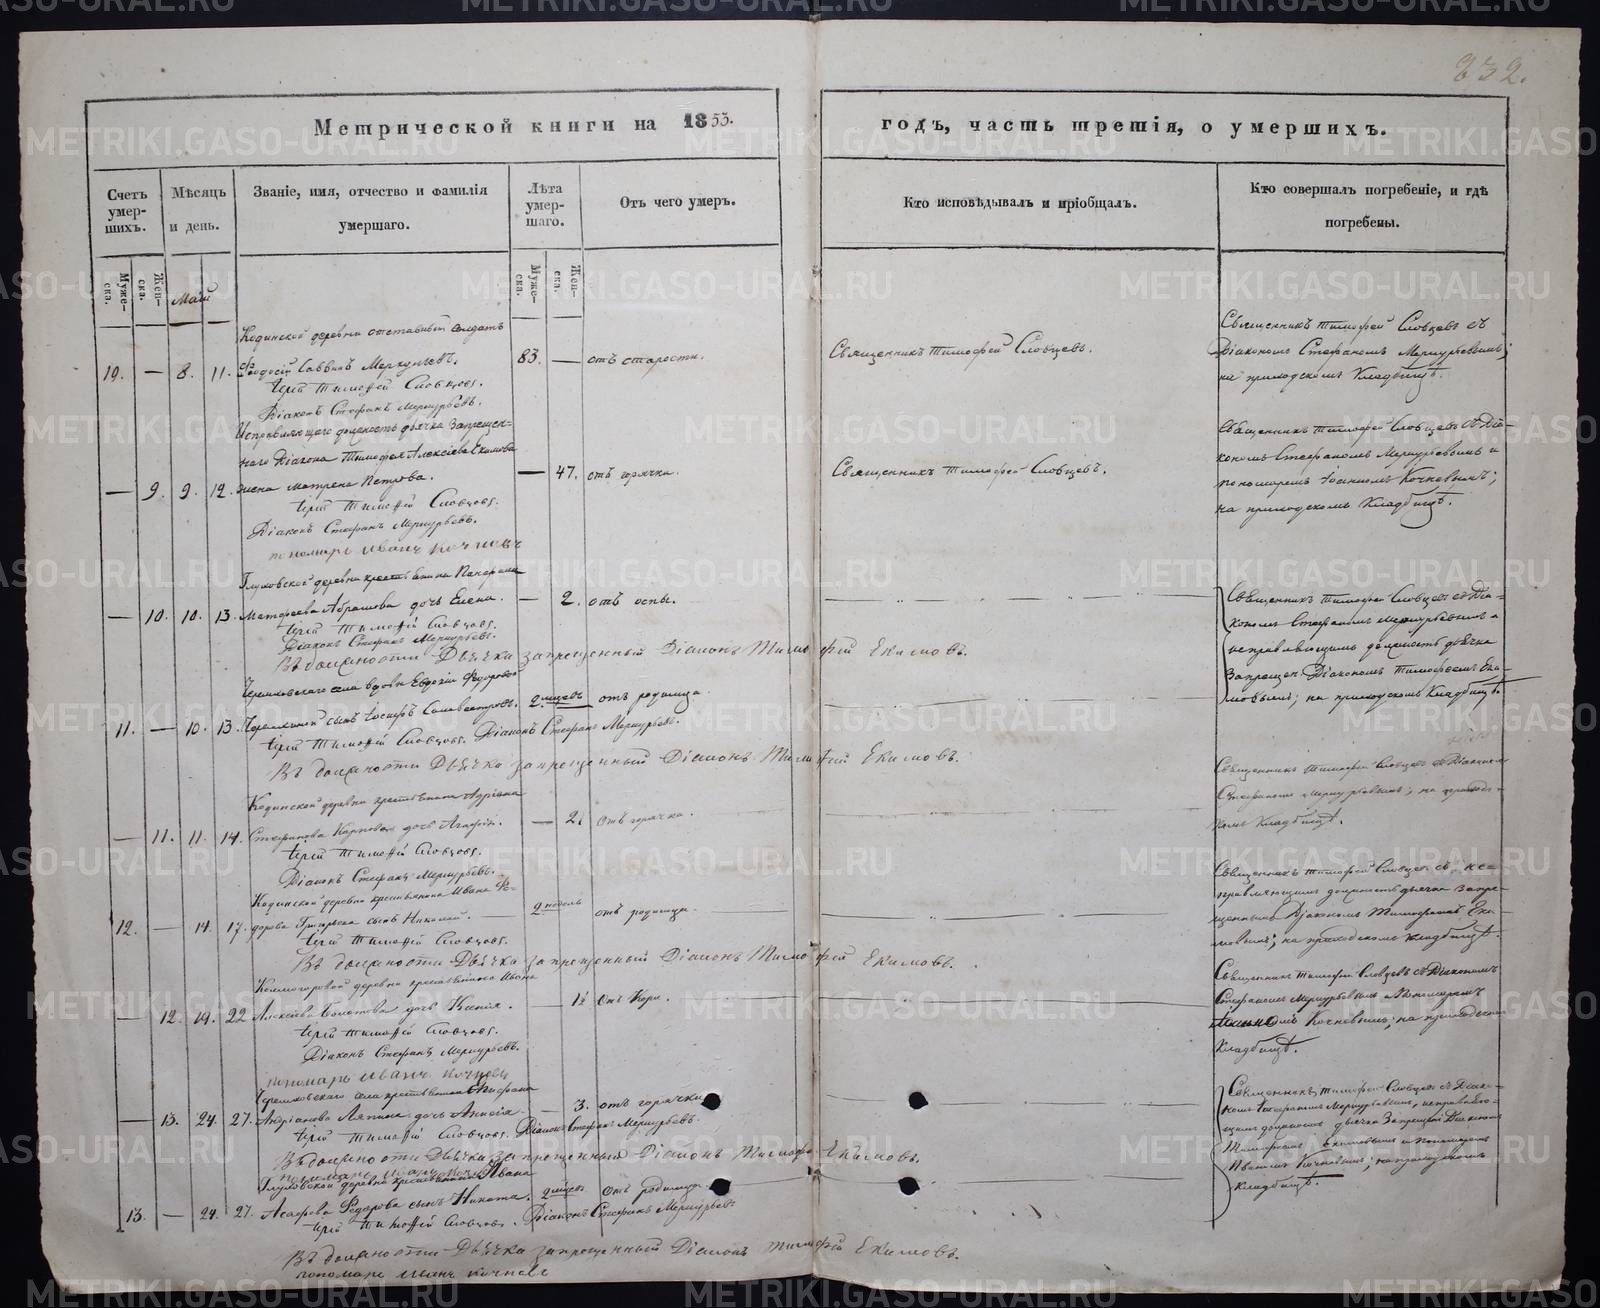 232.
Метрической книги на 1853. годъ, часть третія, о умершихъ.
Счетъ умер-шихъ.
Мѣсяцъ и день.
Званіе, имя, отчество и фамилія умершаго.
Лѣта умер-шаго.
Отъ чего умеръ.
Кто исповѣдывалъ и пріобщалъ.
Кто совершалъ погребеніе, и гдѣ погребены.
Муже-ска.
Жен-ска.
Муже-ска.
Жен-ска.
Май
Кодинской деревни отставной солдатъ
19. — 8. 11. Феодосій Саввинъ Меркурьевъ. 83. — отъ старости.
Іерей Тимофей Словцовъ.
Діаконъ Стефанъ Меркурьевъ.
Священникъ Тимофей Словцевъ.
Священникъ Тимофей Словцевъ съ
Діакономъ Стефаномъ Меркурьевымъ;
на приходскомъ Кладбищѣ.
Исправляющаго должность дьячка Запрещен-
наго Діакона Тимофея Алексіева Екимова
— 9. 9. 12. жена Матрена Петрова. — 47. отъ горячки.
Іерей Тимофей Словцовъ.
Діаконъ Стефанъ Меркурьевъ.
пономарь Иванъ Кочневъ
Священникъ Тимофей Словцевъ.
Священникъ Тимофей Словцевъ съ Діа-
кономъ Стефаномъ Меркурьевымъ и
пономаремъ Іоанномъ Кочневымъ;
на приходскомъ Кладбищѣ.
деревни крестьянина
— 10. 10. 13. Матфеева Абрамова дочь Елена. — 2. отъ оспы.
Іерей Тимофей Словцовъ.
Діаконъ Стефанъ Меркурьевъ.
Въ должности Дьячка запрещенный Діаконъ Тимофей Екимовъ.
Священникъ Тимофей Словцевъ съ Діа-
кономъ Стефаномъ Меркурьевымъ и
исправляющимъ должность дьячка
Запрещен. Діакономъ Тимофеемъ Еки-
мовымъ; на приходскомъ Кладбищѣ.
села вдовы Евдокіи Федоровой
11. — 10. 13. сынъ Іосифъ 2. мѣсяцъ отъ родимца.
Іерей Тимофей Словцовъ. Діаконъ Стефанъ Меркурьевъ.
Въ должности Дьячка запрещенный Діаконъ Тимофей Екимовъ.
Кодинской деревни крестьянина Адріана
— 11. 11. 14. Стефанова Карпова дочь Агафія. — 2. отъ горячки.
Іерей Тимофей Словцовъ.
Діаконъ Стефанъ Меркурьевъ.
Священникъ Тимофей Словцевъ съ Діакономъ
Стефаномъ Меркурьевымъ; на приход-
скомъ Кладбищѣ.
Кодинской деревни крестьянина Ивана Фе-
12. — 14. 17. дорова сынъ Николай. 2. недѣль отъ родимца.
Іерей Тимофей Словцовъ.
Въ должности Дьячка запрещенный Діаконъ Тимофей Екимовъ.
Священникъ Тимофей Словцевъ съ ис-
правляющимъ должность дьячка Запре-
щеннымъ Діакономъ Тимофеемъ Еки-
мовымъ; на приходскомъ Кладбищѣ.
деревни крестьянина Ивана
— 12. 19. 22 Алексіева дочь Ксенія. — отъ Кори.
Іерей Тимофей Словцовъ.
Діаконъ Стефанъ Меркурьевъ.
пономарь Иванъ Кочневъ
Священникъ Тимофей Словцевъ съ Діакономъ
Стефаномъ Меркурьевымъ и Пономаремъ
Кочневымъ; на приходскомъ
Кладбищѣ.
села крестьянина
— 13. 24. 27. Андріанова Ляпина дочь — 3. отъ горячки
Іерей Тимофей Словцовъ. Діаконъ Стефанъ Меркурьевъ.
Въ должности Дьячка запрещенный Діаконъ Тимофей Екимовъ.
пономарь Иванъ
Священникъ Тимофей Словцевъ съ Діако-
номъ Стефаномъ Меркурьевымъ, исправляю-
щимъ должность дьячка Запрещен. Діакономъ
Тимофеемъ Екимовымъ и Пономаремъ
Иваномъ Кочневымъ; на приходскомъ
Кладбищѣ.
деревни крестьянина Ивана
13. — 24. 27. Федорова сынъ Никита. 2 отъ родимца.
Іерей Тимофей Словцовъ. Діаконъ Стефанъ Меркурьевъ
Въ должности Дьячка запрещенный Діаконъ Тимофей Екимовъ.
пономарь Иванъ Кочневъ
METRIKI.GASO-URAL.RU